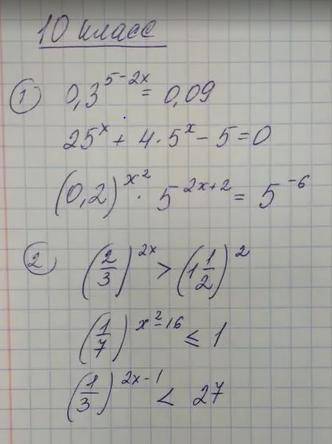 10 класс
① 0,3^{5-2x} = 0,09
25^x + 4·5^x - 5 = 0
(0,2)^{x^2} · 5^{2x+2} = 5^{-6}
② (2/3)^{2x} > (1 1/2)^2
(1/7)^{x^2-16} ≤ 1
(1/3)^{2x-1} < 27